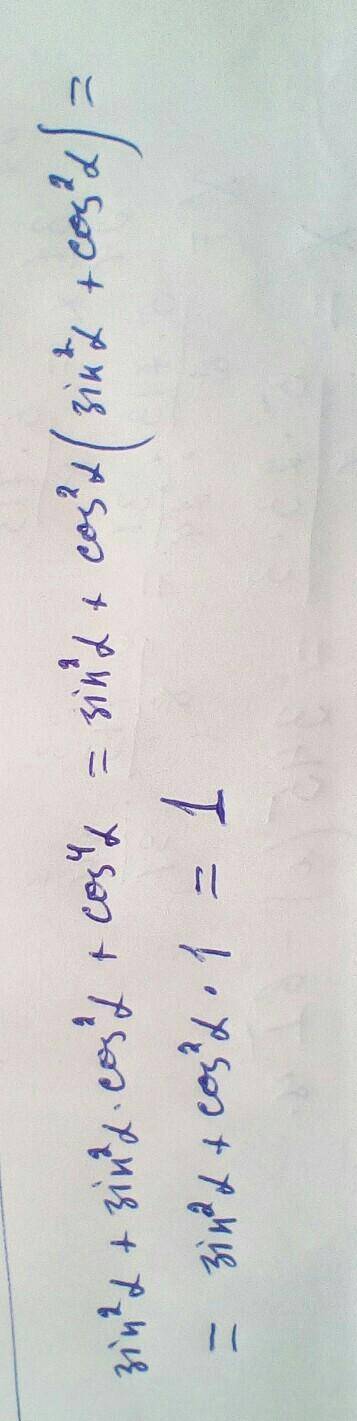 sin²α + sin²α · cos²α + cos⁴α = sin²α + cos²α (sin²α + cos²α) =
= sin²α + cos²α · 1 = 1